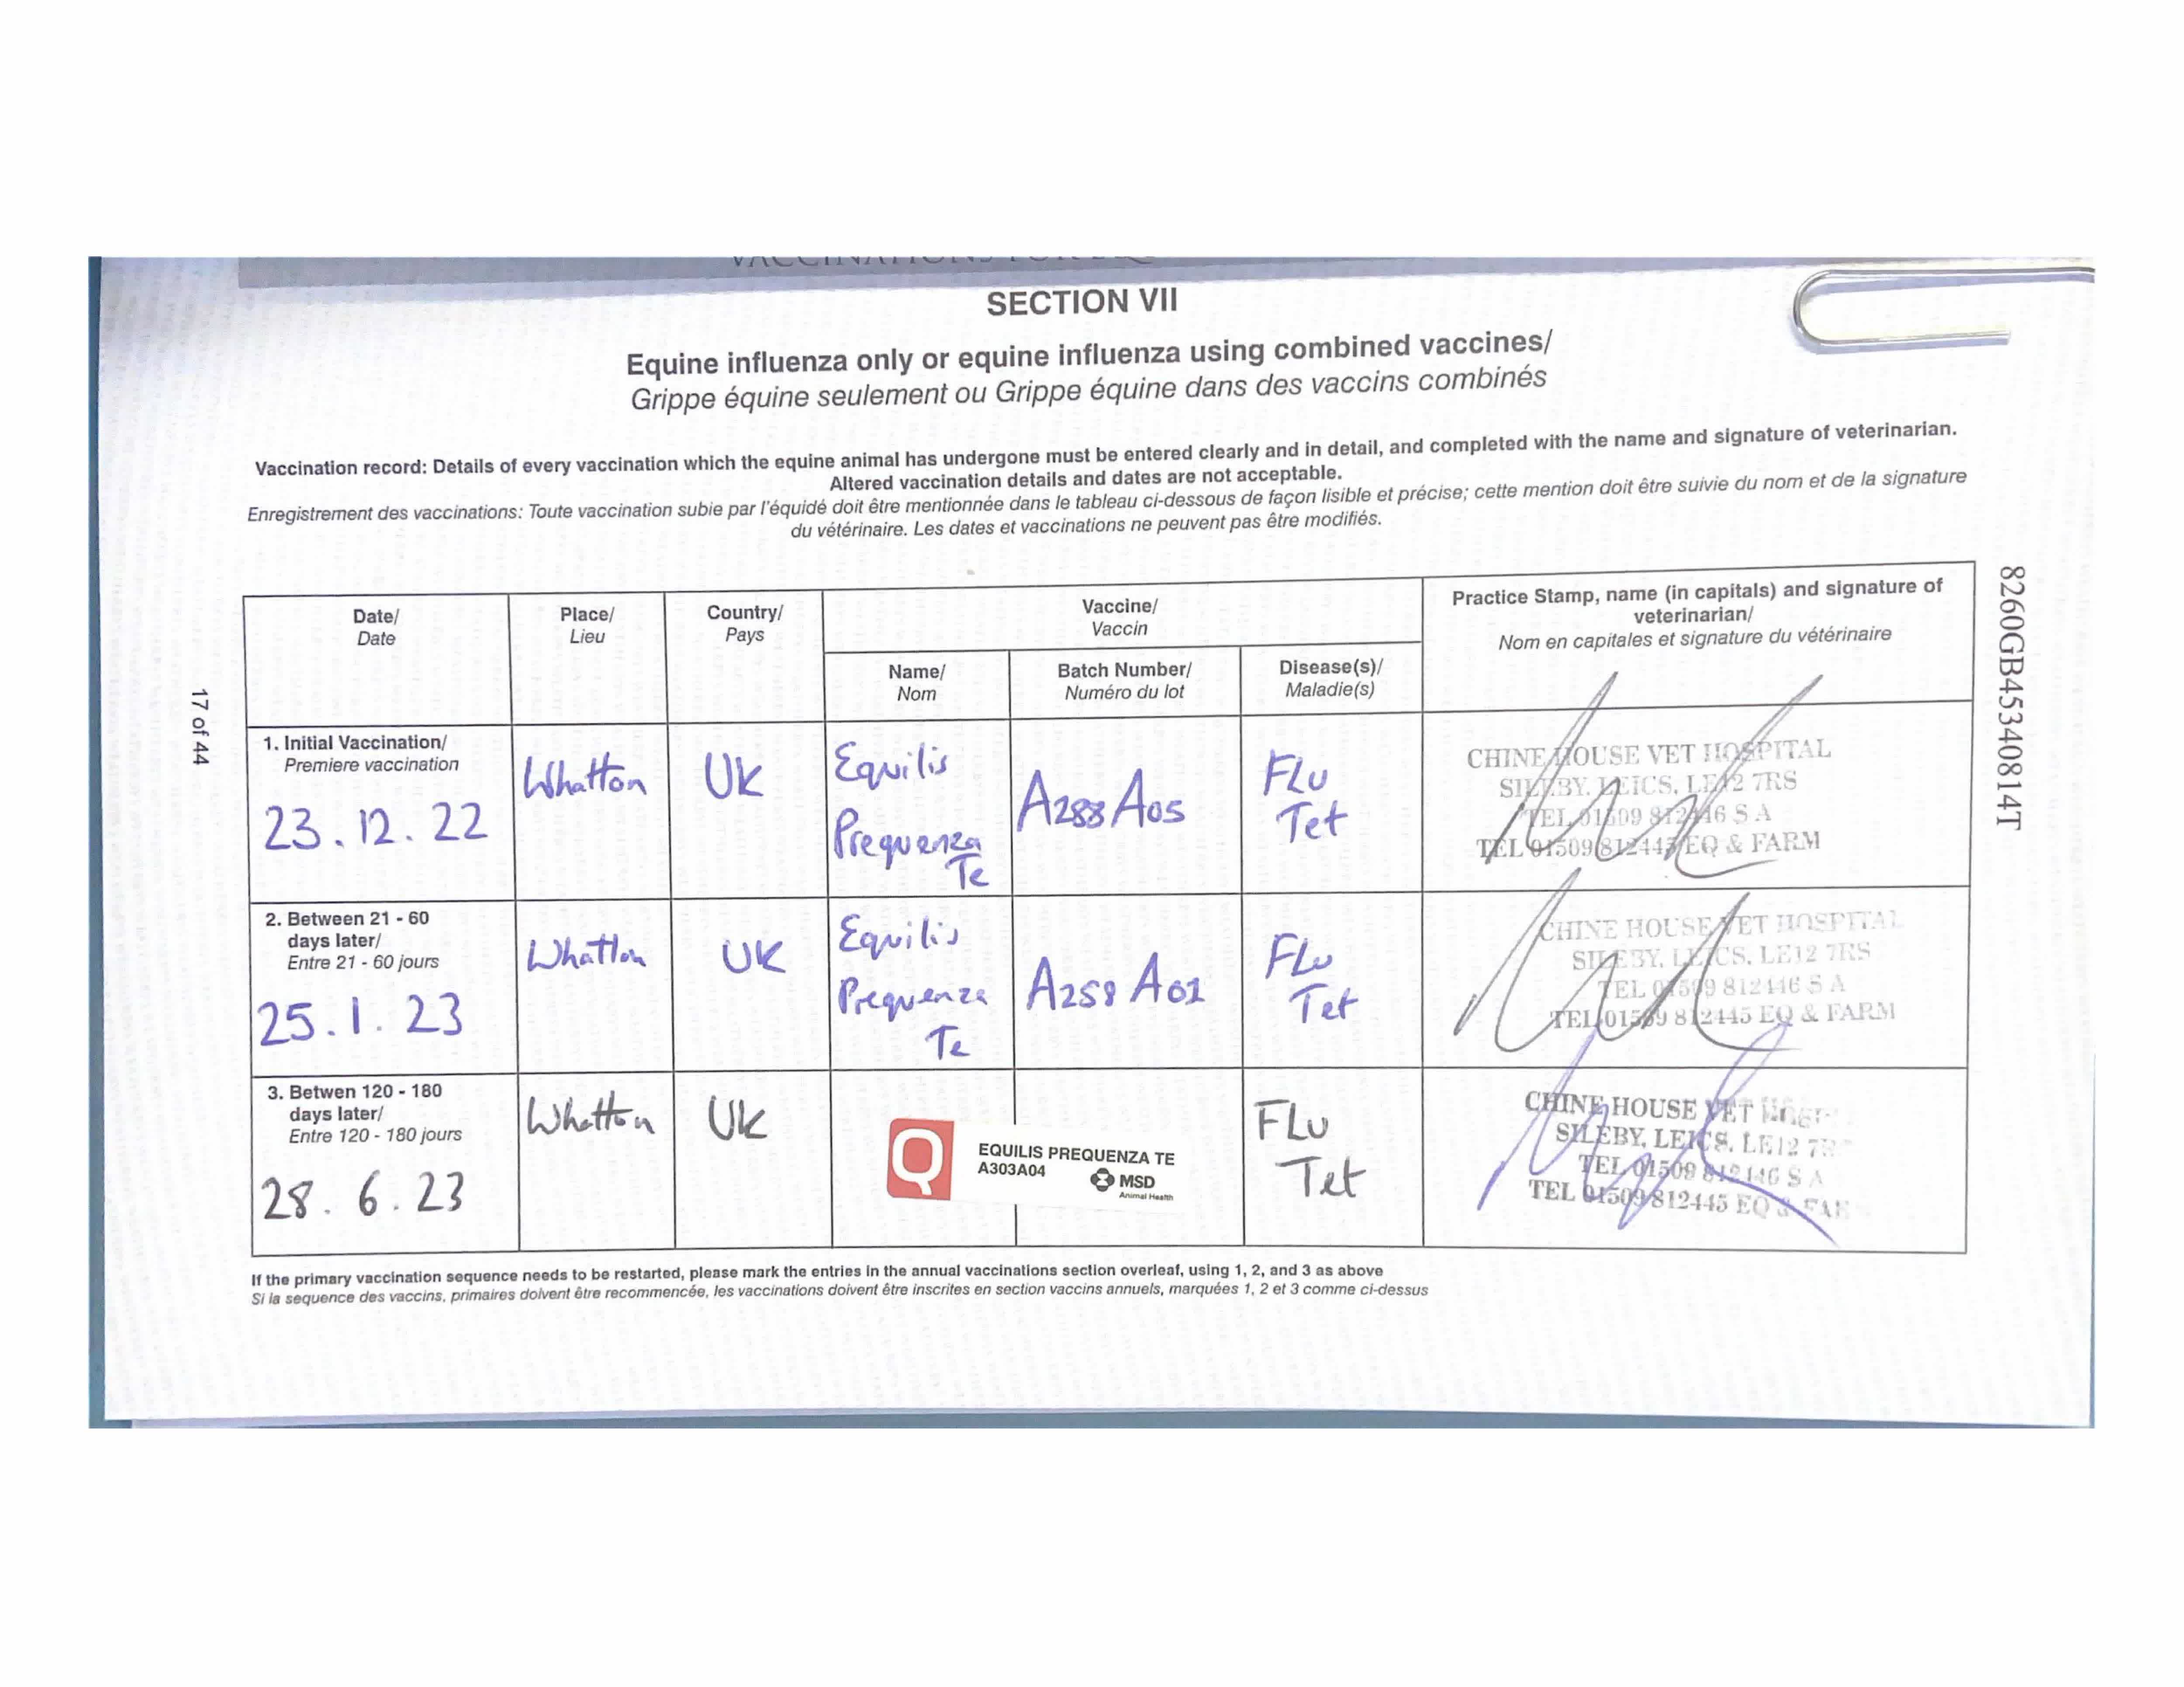 SECTION VII
Equine influenza only or equine influenza using combined vaccines/
Grippe équine seulement ou Grippe équine dans des vaccins combinés
Vaccination record: Details of every vaccination which the equine animal has undergone must be entered clearly and in detail, and completed with the name and signature of veterinarian.
Altered vaccination details and dates are not acceptable.
Enregistrement des vaccinations: Toute vaccination subie par l'équidé doit être mentionnée dans le tableau ci-dessous de façon lisible et précise; cette mention doit être suivie du nom et de la signature
du vétérinaire. Les dates et vaccinations ne peuvent pas être modifiés.
Date/
Date
Place/
Lieu
Country/
Pays
Vaccine/
Vaccin
Name/
Nom
Batch Number/
Numéro du lot
Disease(s)/
Maladie(s)
Practice Stamp, name (in capitals) and signature of
veterinarian/
Nom en capitales et signature du vétérinaire
1. Initial Vaccination/
Premiere vaccination
23.12.22
Whatton
UK
Equilis
Prequenza
Te
A288 A05
Flu
Tet
CHINE HOUSE VET HOSPITAL
SILEBY. LEICS, LE12 7RS
TEL 01509 812446 S A
TEL 01509 812445 EQ & FARM
2. Between 21 - 60
days later/
Entre 21 - 60 jours
25.1.23
Whatton
UK
Equilis
Prequenza
Te
A258 A01
Flu
Tet
CHINE HOUSE VET HOSPITAL
SILEBY, LEICS. LE12 7RS
TEL 01509 812446 S A
TEL 01509 812445 EQ & FARM
3. Betwen 120 - 180
days later/
Entre 120 - 180 jours
28.6.23
Whatton
UK
Q
EQUILIS PREQUENZA TE
A303A04
MSD
Animal Health
Flu
Tet
CHINE HOUSE VET
SILEBY, LEICS. LE12
TEL 01509 812446 S A
TEL 01509 812445 EQ &
If the primary vaccination sequence needs to be restarted, please mark the entries in the annual vaccinations section overleaf, using 1, 2, and 3 as above
Si la sequence des vaccins, primaires doivent être recommencée, les vaccinations doivent être inscrites en section vaccins annuels, marquées 1, 2 et 3 comme ci-dessus
17 of 44
8260GB45340814T